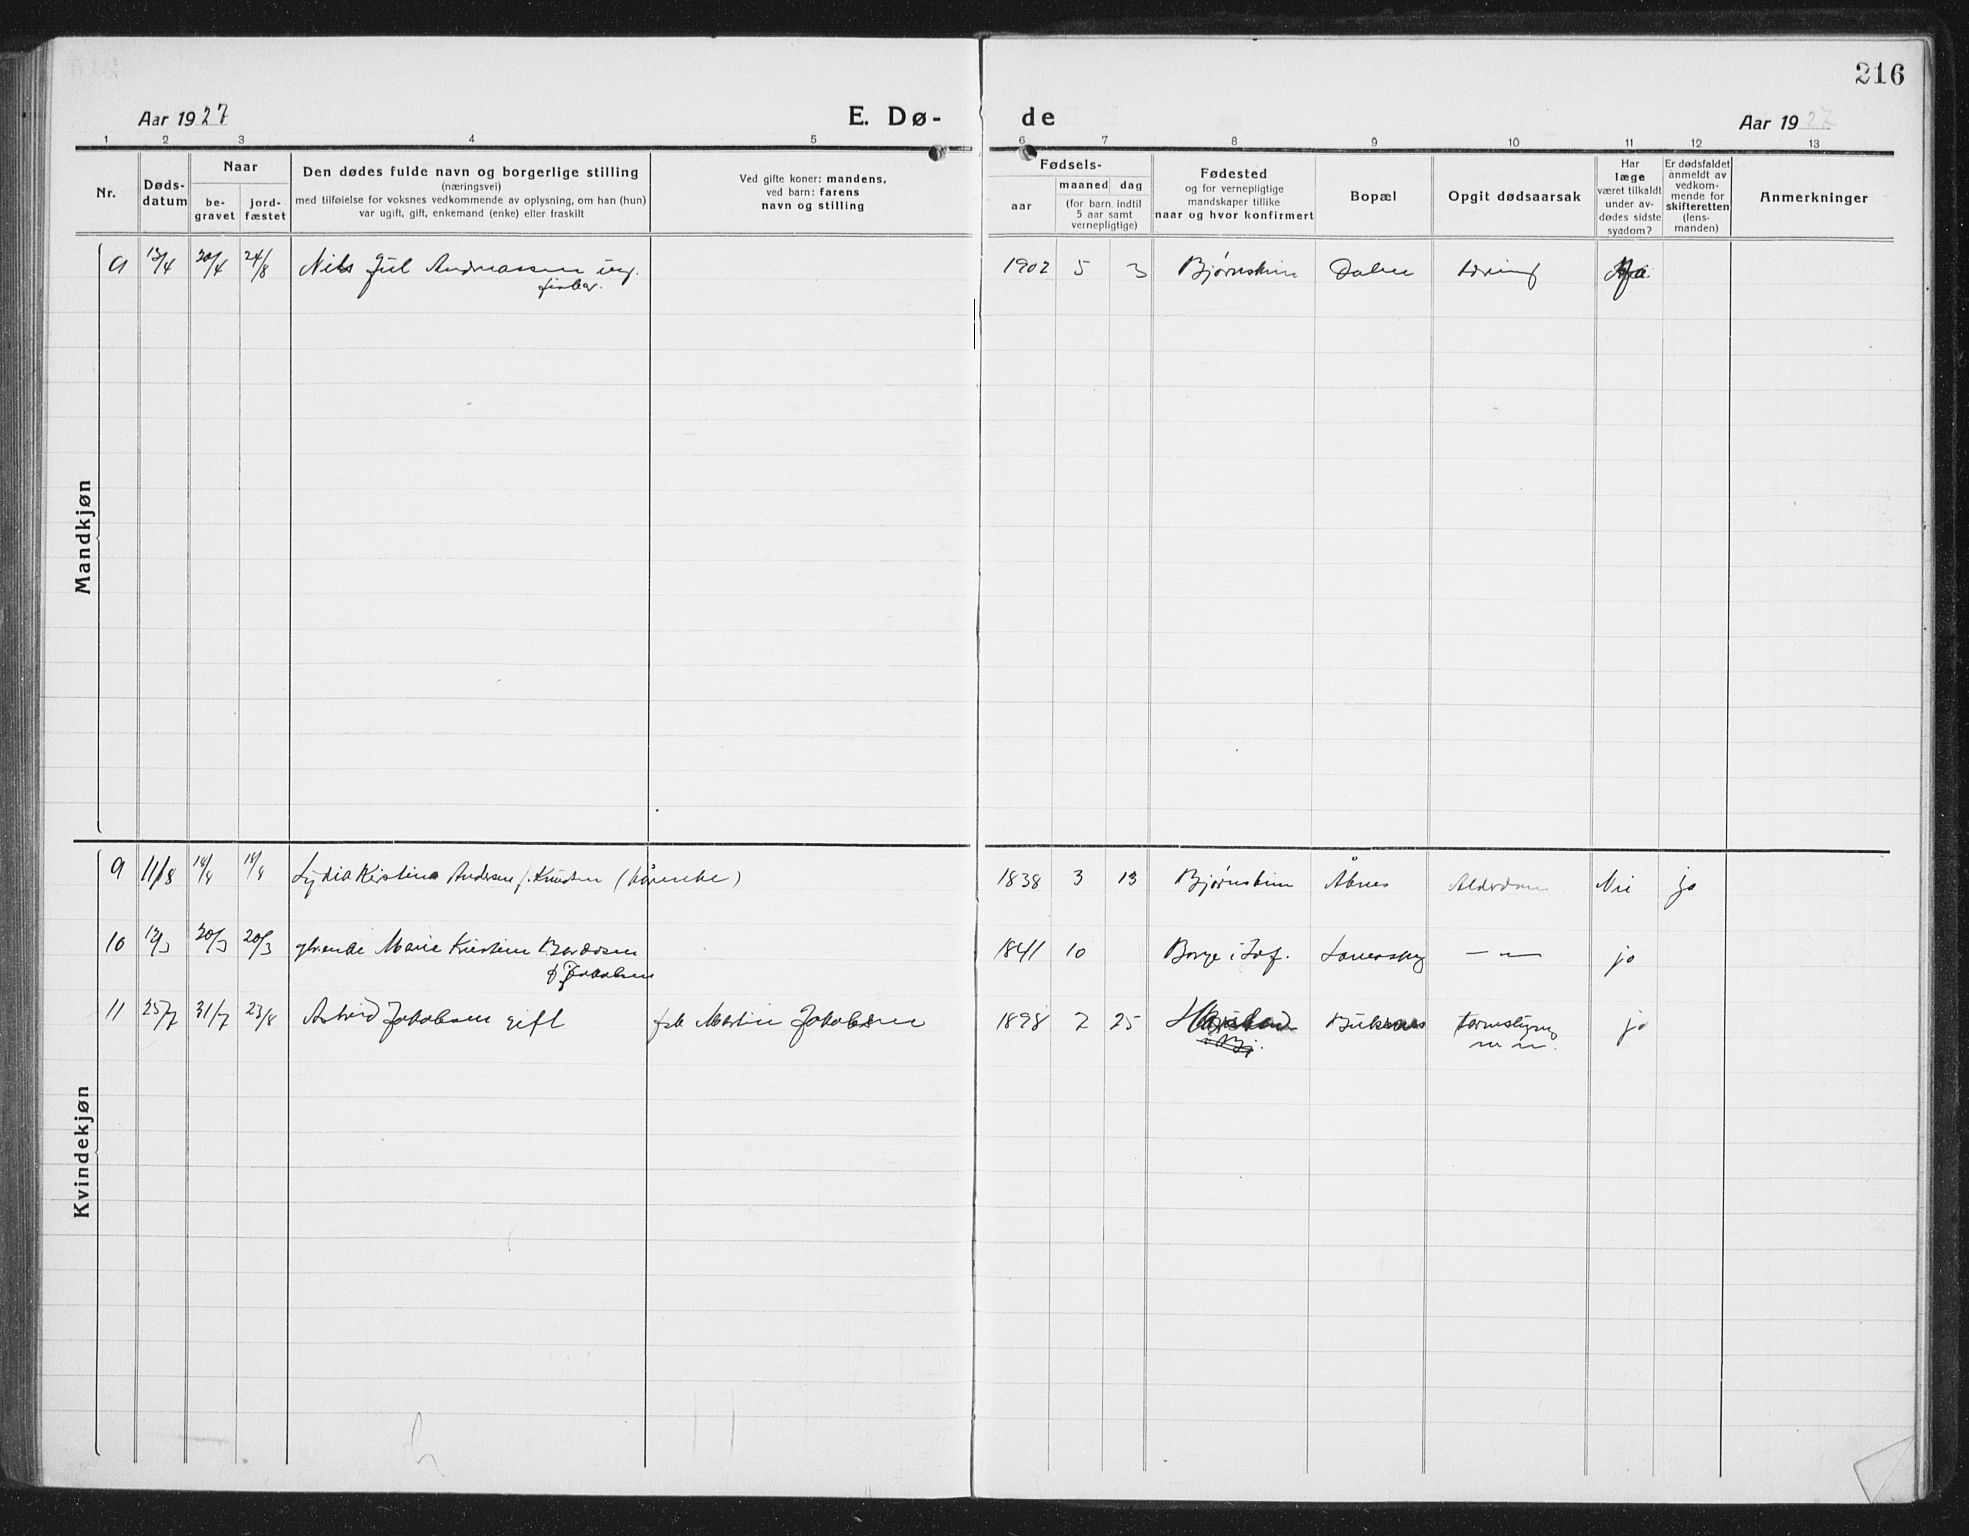 216
Aar 1927 E. Dø- de Aar 1927
1 2 3 4 5 6 7 8 9 10 11 12 13
Nr.
Døds-
datum
Naar
be-
gravet
jord-
fæstet
Den dødes fulde navn og borgerlige stilling
(næringsvei)
med tilføielse for voksnes vedkommende av oplysning, om han (hun)
var ugift, gift, enkemand (enke) eller fraskilt
Ved gifte koner: mandens,
ved barn: farens
navn og stilling
Fødsels-
aar
maaned dag
(for barn indtil
5 aar samt
vernepligtige)
Fødested
og for vernepligtige
mandskaper tillike
naar og hvor konfirmert
Bopæl
Opgit dødsaarsak
Har
læge
været tilkaldt
under av-
dødes sidste
sygdom?
Er dødsfaldet
anmeldt av
vedkom-
mende for
skifteretten
(lens-
manden)
Anmerkninger
Mandkjøn
9 13/4 20/4 24/8 Nils Jul Andreassen ug. 1902 5 3 Bjørnskin Dalen tæring Ja
fisker.
Kvindekjøn
9 11/8 18/8 18/8 Lydia Kirstina Andersen f. Knudsen 1838 3 13 Bjørnskinn Åknes Alderdom Nei jo
10 12/3 20/3 20/3 Marie Kirstine Bordsen 1841 10 Borge i Lof. — " — jo
f. Jakobsen
11 25/7 31/7 23/8 Astrid Jakobsen gift fsk Martin Jakobsen 1898 2 25 jo